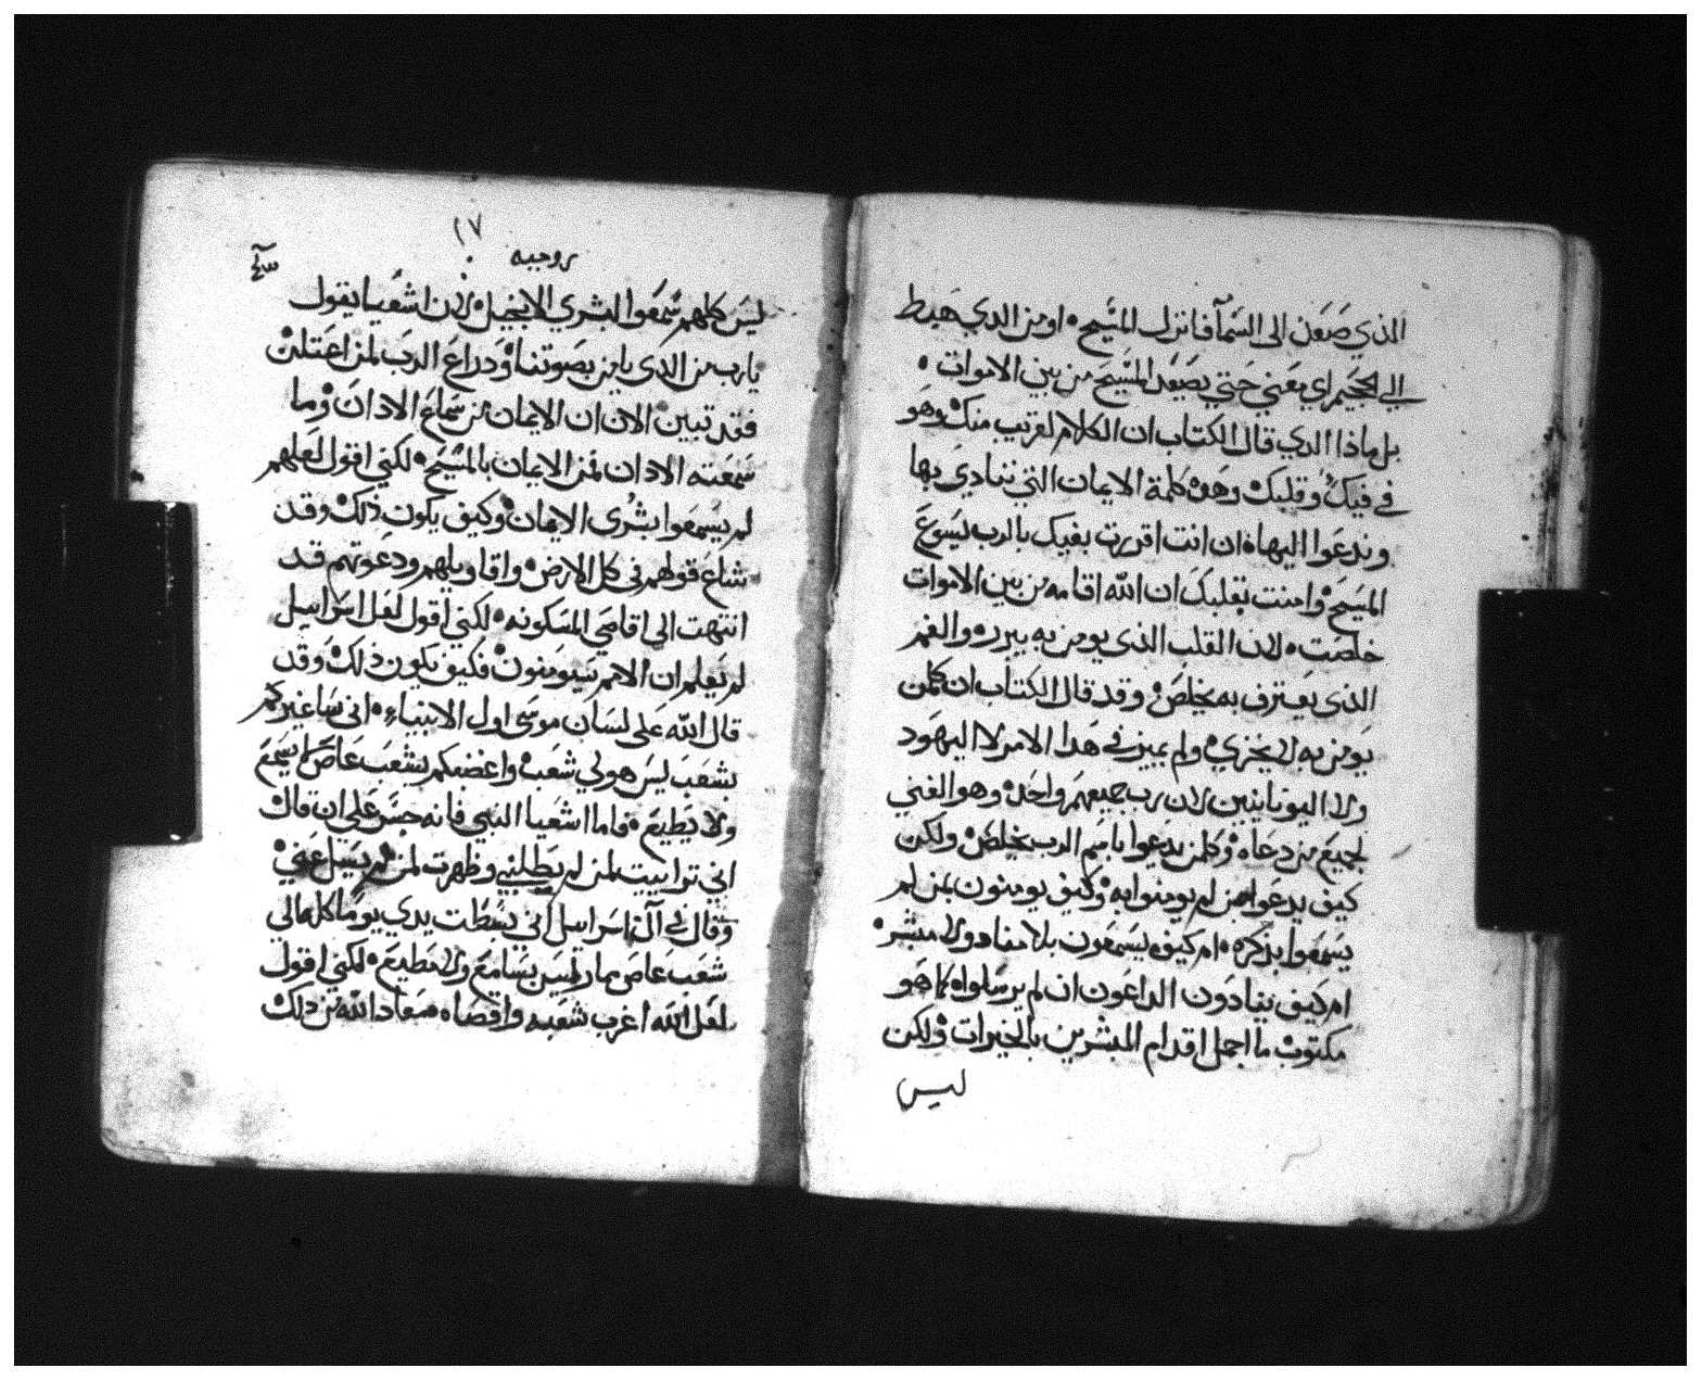 الذي صعد الى السمآ فانزل المسيح ۰ او من الدي هبط
الي الجحيم اي بمعني حتي يصعد المسيح من بين الاموات ۰
بل ماذا الدي قال الكتاب ان الكلام لقريب منك وهو
في فيك وقلبك وهده كلمة الايمان التي ننادي بها
وندعوا اليها ان انت اقررت بفيك بالرب يسوع
المسيح وامنت بقلبك ان الله اقامه من بين الاموات
خلصت ۰ لان القلب الذي يومن به يبرره والفم
الذي يعترف به يخلص وقد قال الكتاب ان كلمن
يومن به لا يخزي ولم يميز في هدا الامر لا اليهود
ولا اليونانيين لان رب جميعهم واحد وهو الغني
لجميع من دعاه وكلمن يدعوا باسم الرب يخلص ولكن
كيف يدعوا من لم يومنوا به وكيف يومنون بمن لم
يسمعوا بذكره ۰ ام كيف يسمعون بلا مناد ولا مبشر ۰
ام كيف ينادون الداعون ان لم يرسلوا كما هو
مكتوب ما اجمل اقدام المبشرين بالخيرات ولكن
ليس
١٧
روميه
ليس كلهم سمعوا البشري الانجيل لان اشعيا يقول
يا رب من الدي يامن بصوتنا ودراع الرب لمن اعتلن
فقد تبين الان ان الايمان من سماع الادان وما
سمعته الادان فمن الايمان بالمسيح ۰ لكني اقول لعلهم
لم يسمعوا بشرى الايمان وكيف يكون ذلك وقد
شاع قولهم في كل الارض واقاويلهم ودعوتهم قد
انتهت الى اقاصي المسكونه ۰ لكني اقول لعل اسراييل
لم يعلم ان الامم سيومنون فكيف يكون ذلك وقد
قال الله على لسان موسى اول الانبياء ۰ انى ساغيركم
بشعب ليس هو لي شعب واغضبكم بشعب عاص لا يسمع
ولا يطيع ۰ فاما اشعيا النبي فانه جسر على ان قال
اني تراييت لمن لم يطلبني وظهرت لمن لم يسيل عني
وقال في آل اسراييل اني بسطت يدي يوما كله الي
شعب عاص مار ليس بسامع ولا مطيع ۰ لكني اقول
لعل الله اغرب شعبه واقصاه معاد الله من دلك